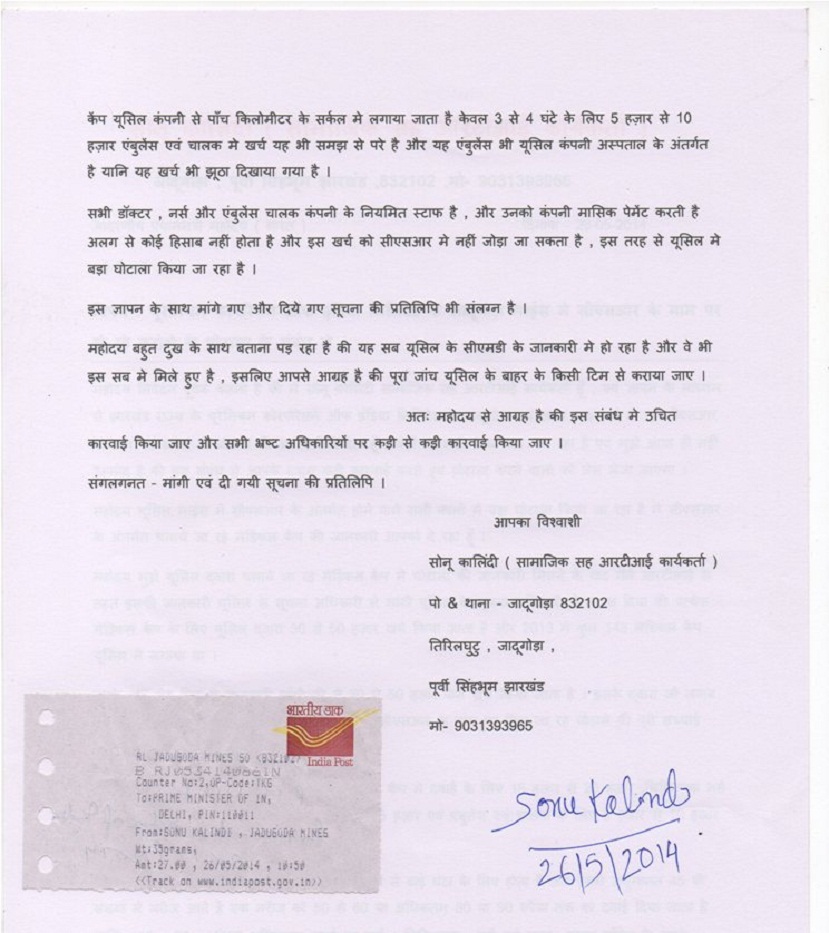 केंप यूसिल कंपनी से पाँच किलोमीटर के सर्कल मे लगाया जाता है केवल 3 से 4 घंटे के लिए 5 हज़ार से 10
हज़ार एंबुलेंस एवं चालक मे खर्च यह भी समझ से परे है और यह एंबुलेंस भी यूसिल कंपनी अस्पताल के अंतर्गत
है यानि यह खर्च भी झूठा दिखाया गया है ।
सभी डॉक्टर , नर्स और एंबुलेंस चालक कंपनी के नियमित स्टाफ है , और उनको कंपनी मासिक पेमेंट करती है
अलग से कोई हिसाब नहीं होता है और इस खर्च को सीएसआर मे नहीं जोड़ा जा सकता है , इस तरह से यूसिल मे
बड़ा घोटाला किया जा रहा है ।
इस ज्ञापन के साथ मांगे गए और दिये गए सूचना की प्रतिलिपि भी संलग्न है ।
महोदय बहुत दुख के साथ बताना पड़ रहा है की यह सब यूसिल के सीएमडी के जानकारी मे हो रहा है और वे भी
इस सब मे मिले हुए है , इसलिए आपसे आग्रह है की पूरा जांच यूसिल के बाहर के किसी टिम से कराया जाए ।
अतः महोदय से आग्रह है की इस संबंध मे उचित
कारवाई किया जाए और सभी भ्रष्ट अधिकारियों पर कड़ी से कड़ी कारवाई किया जाए ।
संगलगनत - मांगी एवं दी गयी सूचना की प्रतिलिपि ।
आपका विश्वाशी
सोनू कालिंदी ( सामाजिक सह आरटीआई कार्यकर्ता )
पो & थाना - जादूगोड़ा 832102
तिरिलघुटु , जादूगोड़ा ,
पूर्वी सिंहभूम झारखंड
मो- 9031393965
भारतीय डाक
India Post
RL JADUGODA MINES SO <832102>
B RJ053414086IN
Counter No:2,OP-Code:TKG
To:PRIME MINISTER OF IN,
DELHI, PIN:110011
From:SONU KALINDI , JADUGODA MINES
Wt:35grams,
Amt:27.00 , 26/05/2014 , 10:50
<<Track on www.indiapost.gov.in>>
Sonu Kalindi
26/5/2014